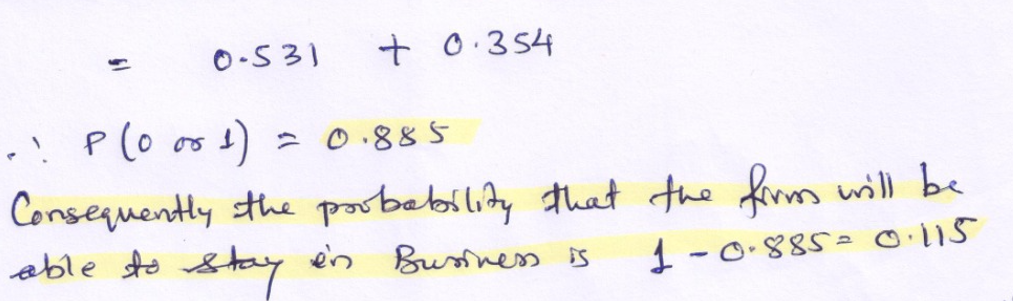 = 0.531 + 0.354
∴ P (0 or 1) = 0.885
Consequently the probability that the firm will be
able to stay in Business is 1 - 0.885 = 0.115